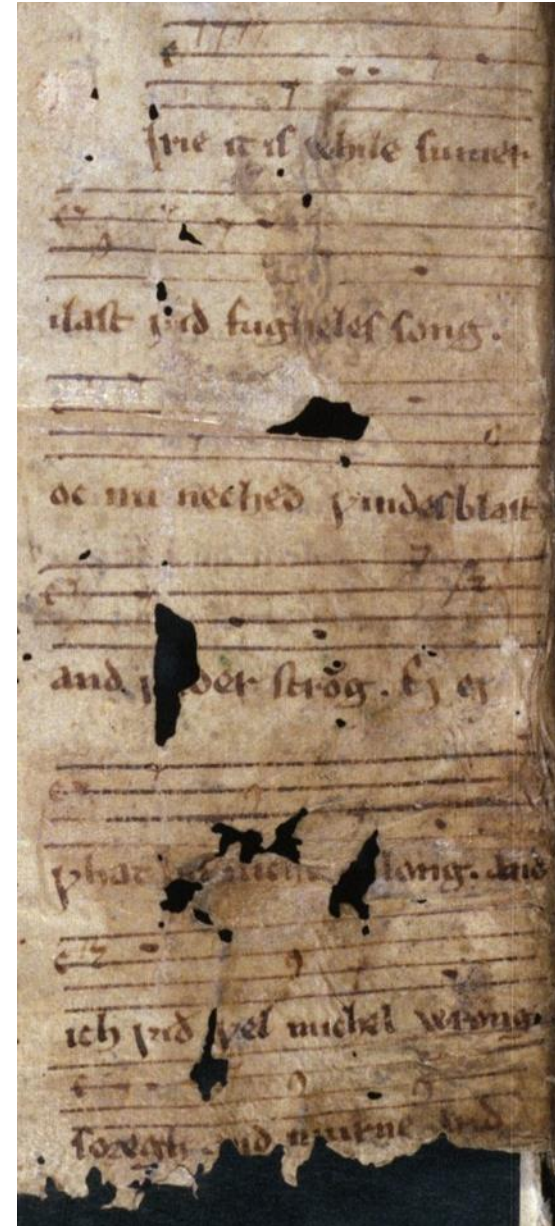 [M]irie it is while sumer
ilast ƿid fugheles song.
oc nu necheð ƿindes blast
and ƿ der strõg. Ej ej
ƿhat niche long. and
ich ƿid ƿel michel wrong.
soregh and murne and